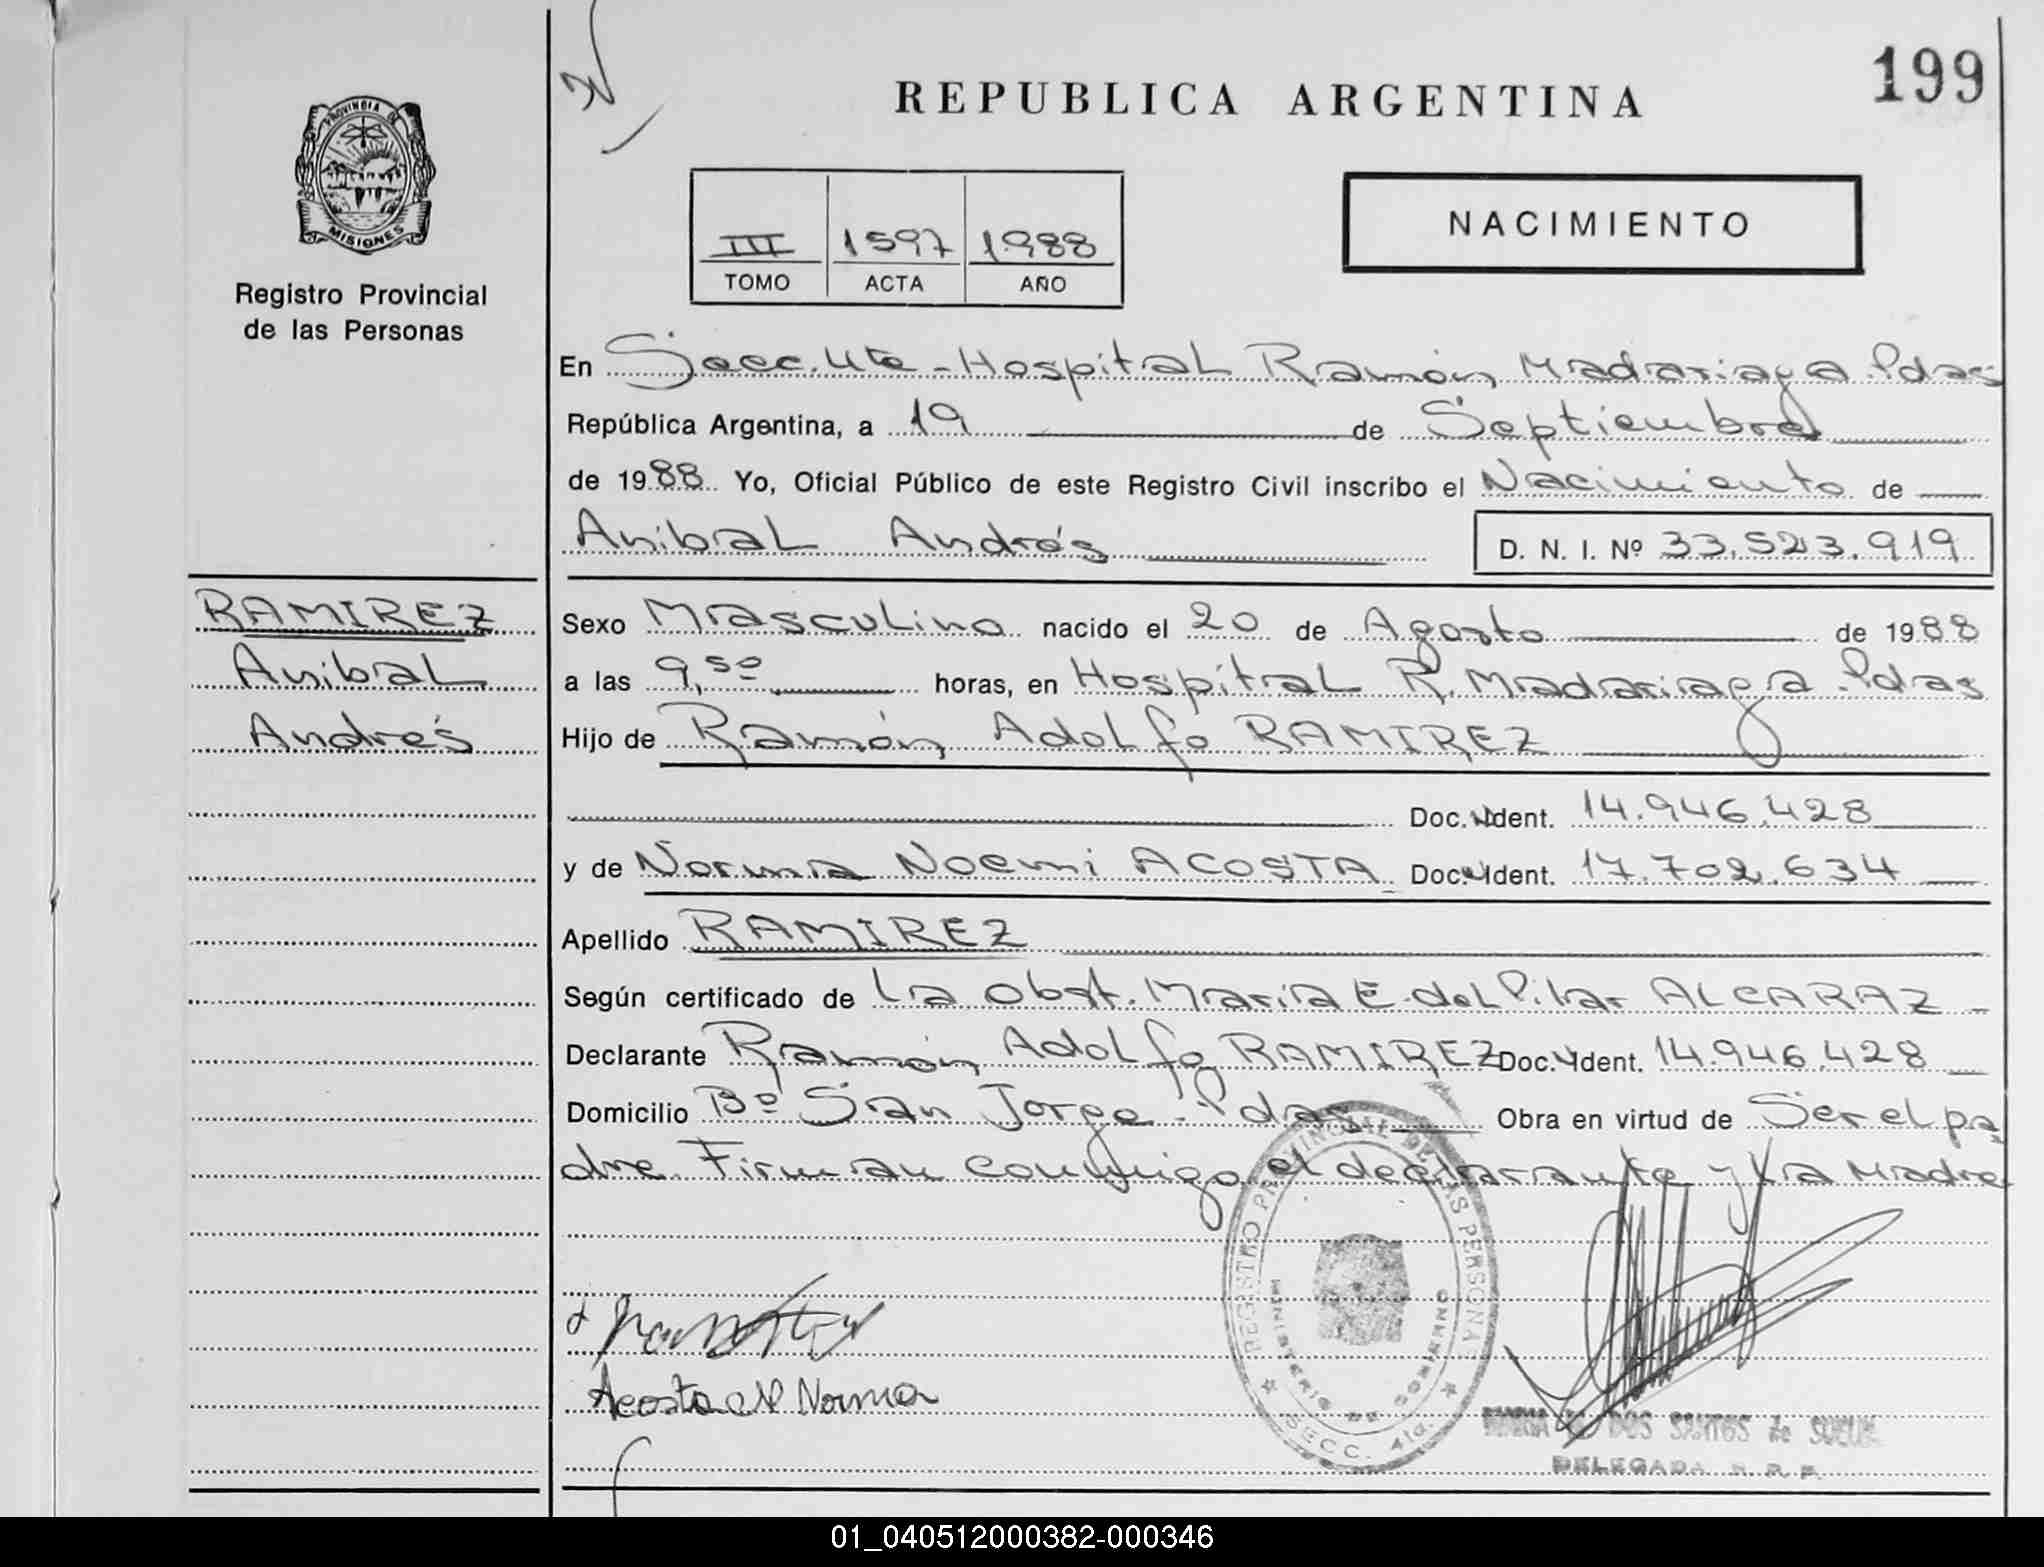 199
REPUBLICA ARGENTINA
PROVINCIA DE
MISIONES
Registro Provincial
de las Personas
III 1597 1988
TOMO ACTA AÑO
NACIMIENTO
En Secc. 4ta - Hospital Ramón Madariaga Pdas
República Argentina, a 19 de Septiembre
de 1988 Yo, Oficial Público de este Registro Civil inscribo el Nacimiento de
Anibal Andrés D. N. I. Nº 33.523.919
RAMIREZ
Anibal
Andrés
Sexo Masculino nacido el 20 de Agosto de 1988
a las 9,50 horas, en Hospital R. Madariaga Pdas
Hijo de Ramón Adolfo RAMIREZ
Doc. Ident. 14.946.428
y de Norma Noemi ACOSTA Doc. Ident. 17.702.634
Apellido RAMIREZ
Según certificado de La Obst. María E. del Pilar ALCARAZ
Declarante Ramón Adolfo RAMIREZ Doc. Ident. 14.946.428
Domicilio Bº San Jorge - Pdas Obra en virtud de Ser el pa
dre Firman conmigo el declarante y La Madre
REGISTRO PROVINCIAL DE LAS PERSONAS
MINISTERIO DE GOBIERNO
SECC. 4ta.
Acosta N Norma
DOS SANTOS de
DELEGADA R. P. P.
01_040512000382-000346